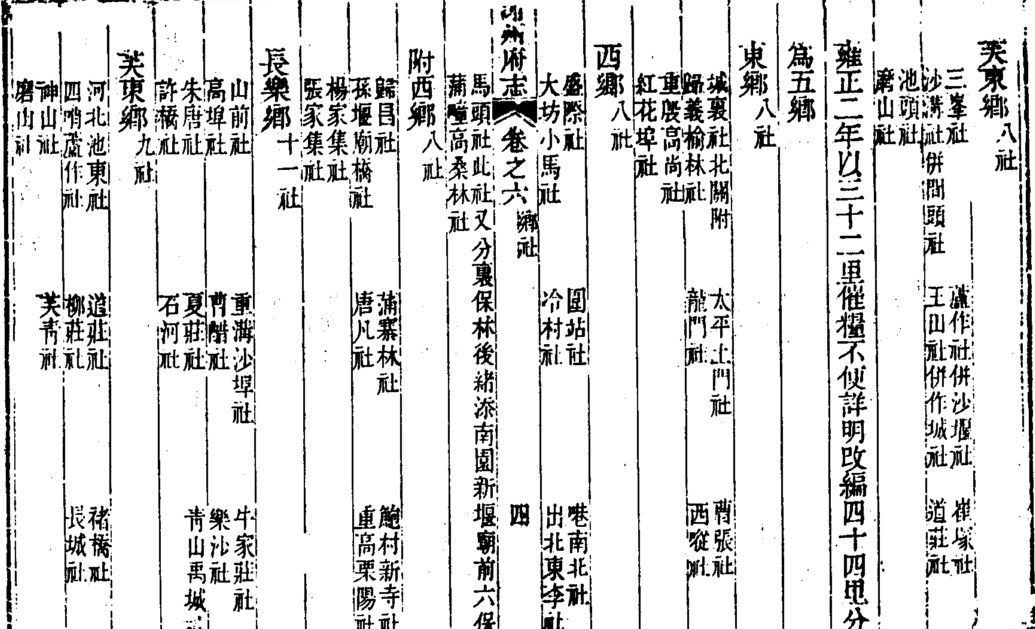 芙東鄉八社
三峯社 蘆作社併沙堰社 崔塚社
沙溝社併閻頭社 王山社併作城社 道莊社
池頭社
磨山社
雍正二年以三十二里催糧不便詳明改編四十四甲分
為五鄉
東鄉八社
城裏社北關附 太平土門社 曹張社
歸義榆林社 龍門社
重展高尚社
紅花埠社
西鄉八社
盛際社 圍站社 巷南北社
大坊小馬社 冷村社 出北東李社
州府志 卷之六 鄉社 四
馬頭社此社又分裏保林後緒添南園新堰廟前六保
蒲疃高桑林社
附西鄉八社
歸昌社 蒲寨林社 鮑村新寺社
孫堰廟橋社 唐凡社 重高栗陽社
楊家集社
張家集社
長樂鄉十一社
山前社 重溝沙埠社 牛家莊社
高埠社 曹醋社 樂沙社
朱唐社 夏莊社 青山禹城
許橋社 石河社
芙東鄉九社
河北池東社 道莊社 褚橋社
四哨蘆作社 柳莊社 長城社
神山社 芙青社
磨山社